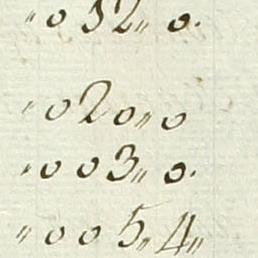 "0 32" 0.
"0 20" 0
"0 0 3" 0.
"0 0 5" 4"